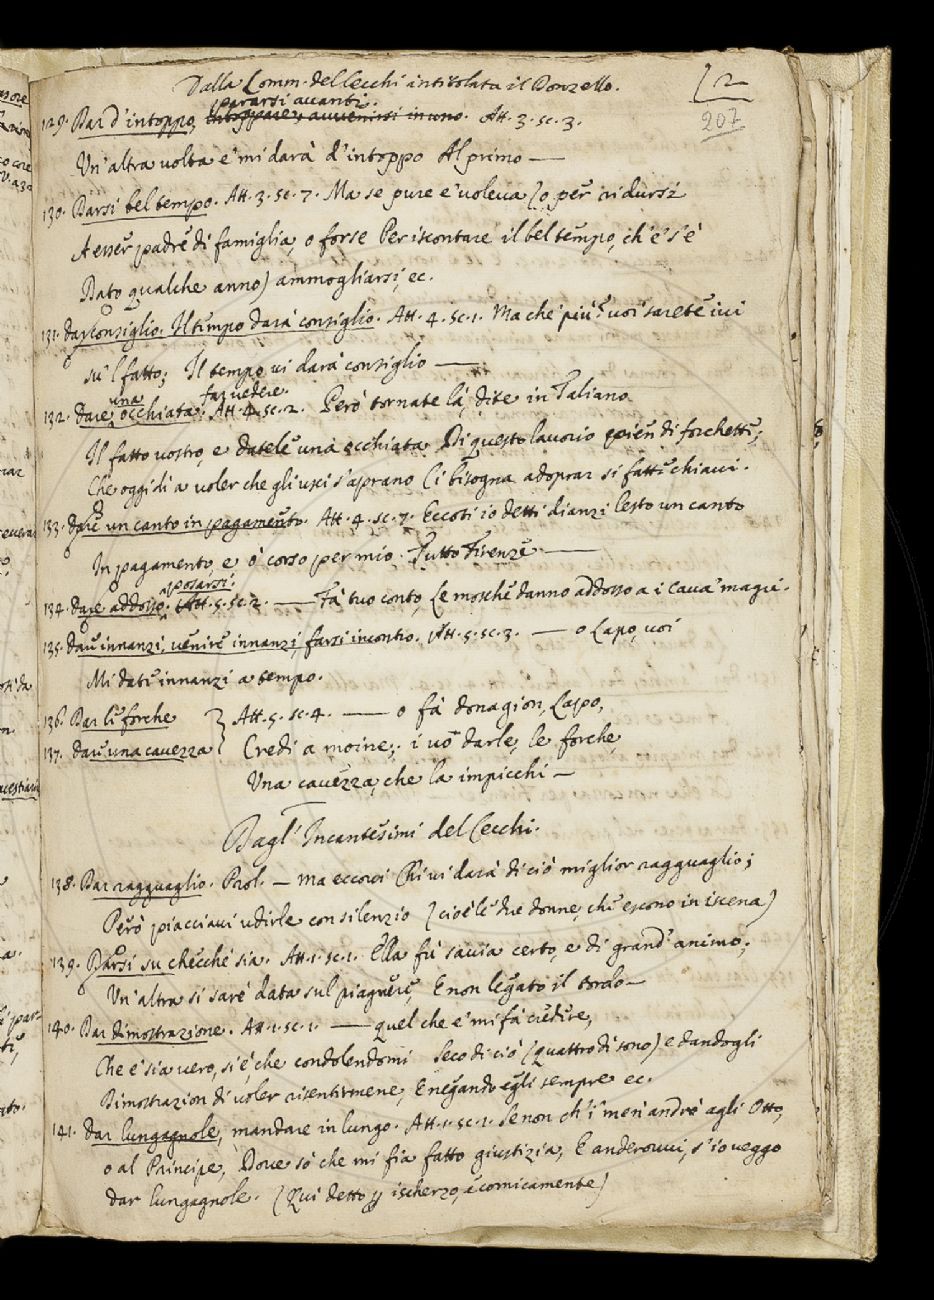 Dalla Comm. del Cecchi intitolata il Donzello.
12
207
pararsi avanti.
129. Dar d'intoppo, intoppare, avvenirsi in uno. Att. 3. sc. 3.
Un'altra volta e' mi darà d'intoppo Al primo —
130. Darsi bel tempo. Att. 3. sc. 7. Ma se pure e' voleva (o per ridursi
A esser padre di famiglia, o forse Per iscontare il bel tempo, ch'e' s'è
Dato qualche anno) ammogliarsi, ec.
131. dar consiglio. Il tempo darà consiglio. Att. 4. sc. 1. Ma che più? voi sarete ivi
su'l fatto; Il tempo vi darà consiglio —
una far vedere.
132. Dare occhiata. Att. 4. sc. 2. Però tornate là, dite in Taliano
Il fatto vostro, e datele una occhiata Di questo lavorio pien di forchette;
Che oggidì a voler che gli usci s'aprano Ci bisogna adoprar sì fatte chiavi.
133. Dare un canto in pagamento. Att. 4. sc. 7. Eccoti io detti dianzi lesto un canto
In pagamento, e ò corso per mio Tutto Firenze —
posarsi.
134. dare addosso. Att. 5. sc. 2. — Fa' tuo conto, Le mosche danno addosso a i cava' magri.
135. Dare innanzi, venire innanzi, farsi incontro. Att. 5. sc. 3. — o Lapo, voi
Mi date innanzi a tempo.
136. Dar le forche } Att. 5. sc. 4. — o fà donagion, Lapo,
137. Dare una cavezza } Credi a moine; i' vo' darle, le forche,
Una cavezza, che la impicchi —
Dagl'Incantesimi del Cecchi.
138. Dar ragguaglio. Prol. — ma eccovi Chi vi darà di ciò miglior ragguaglio;
Però piacciavi udirle con silenzio (cioè le due donne, che escono in iscena)
139. Darsi su checché sia. Att. 1. sc. 1. Ella fù savia certo, e di grand'animo;
Un'altra si sare' data sul piagnere, E non legato il tordo —
140. Dar dimostrazione. Att. 1. sc. 1. — quel che e' mi fà credere,
Che e' sia vero, si è, che condolendomi Seco di ciò (quattro dì sono) e dandogli
Dimostrazion di voler risentirmene, E negando egli sempre ec.
141. Dar lungagnole, mandare in lungo. Att. 1. sc. 1. Se non ch'i' men'andrò agli Otto,
o al Principe, Dove sò che mi fia fatto giustizia, E anderovvi, s'io veggo
dar lungagnole. (Qui detto p ischerzo, à comicamente)